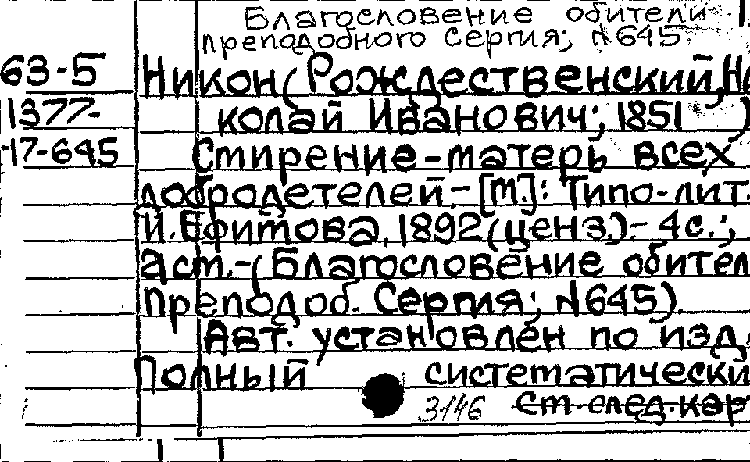 Благословение обители
преподобного Сергия; №645.
63-5 Никон (Рождественский,
1377- колай Иванович; 1851 )
17-645 Смирение-матерь всех
добродетелей.- [М.]: Типо-лит.
И. Ефимова, 1892 (ценз.).- 4с.;
аст.-(Благословение обител
преподоб. Сергия; №645).
Авт. установлен по изд.
Полный систематически
3146 См след. кар